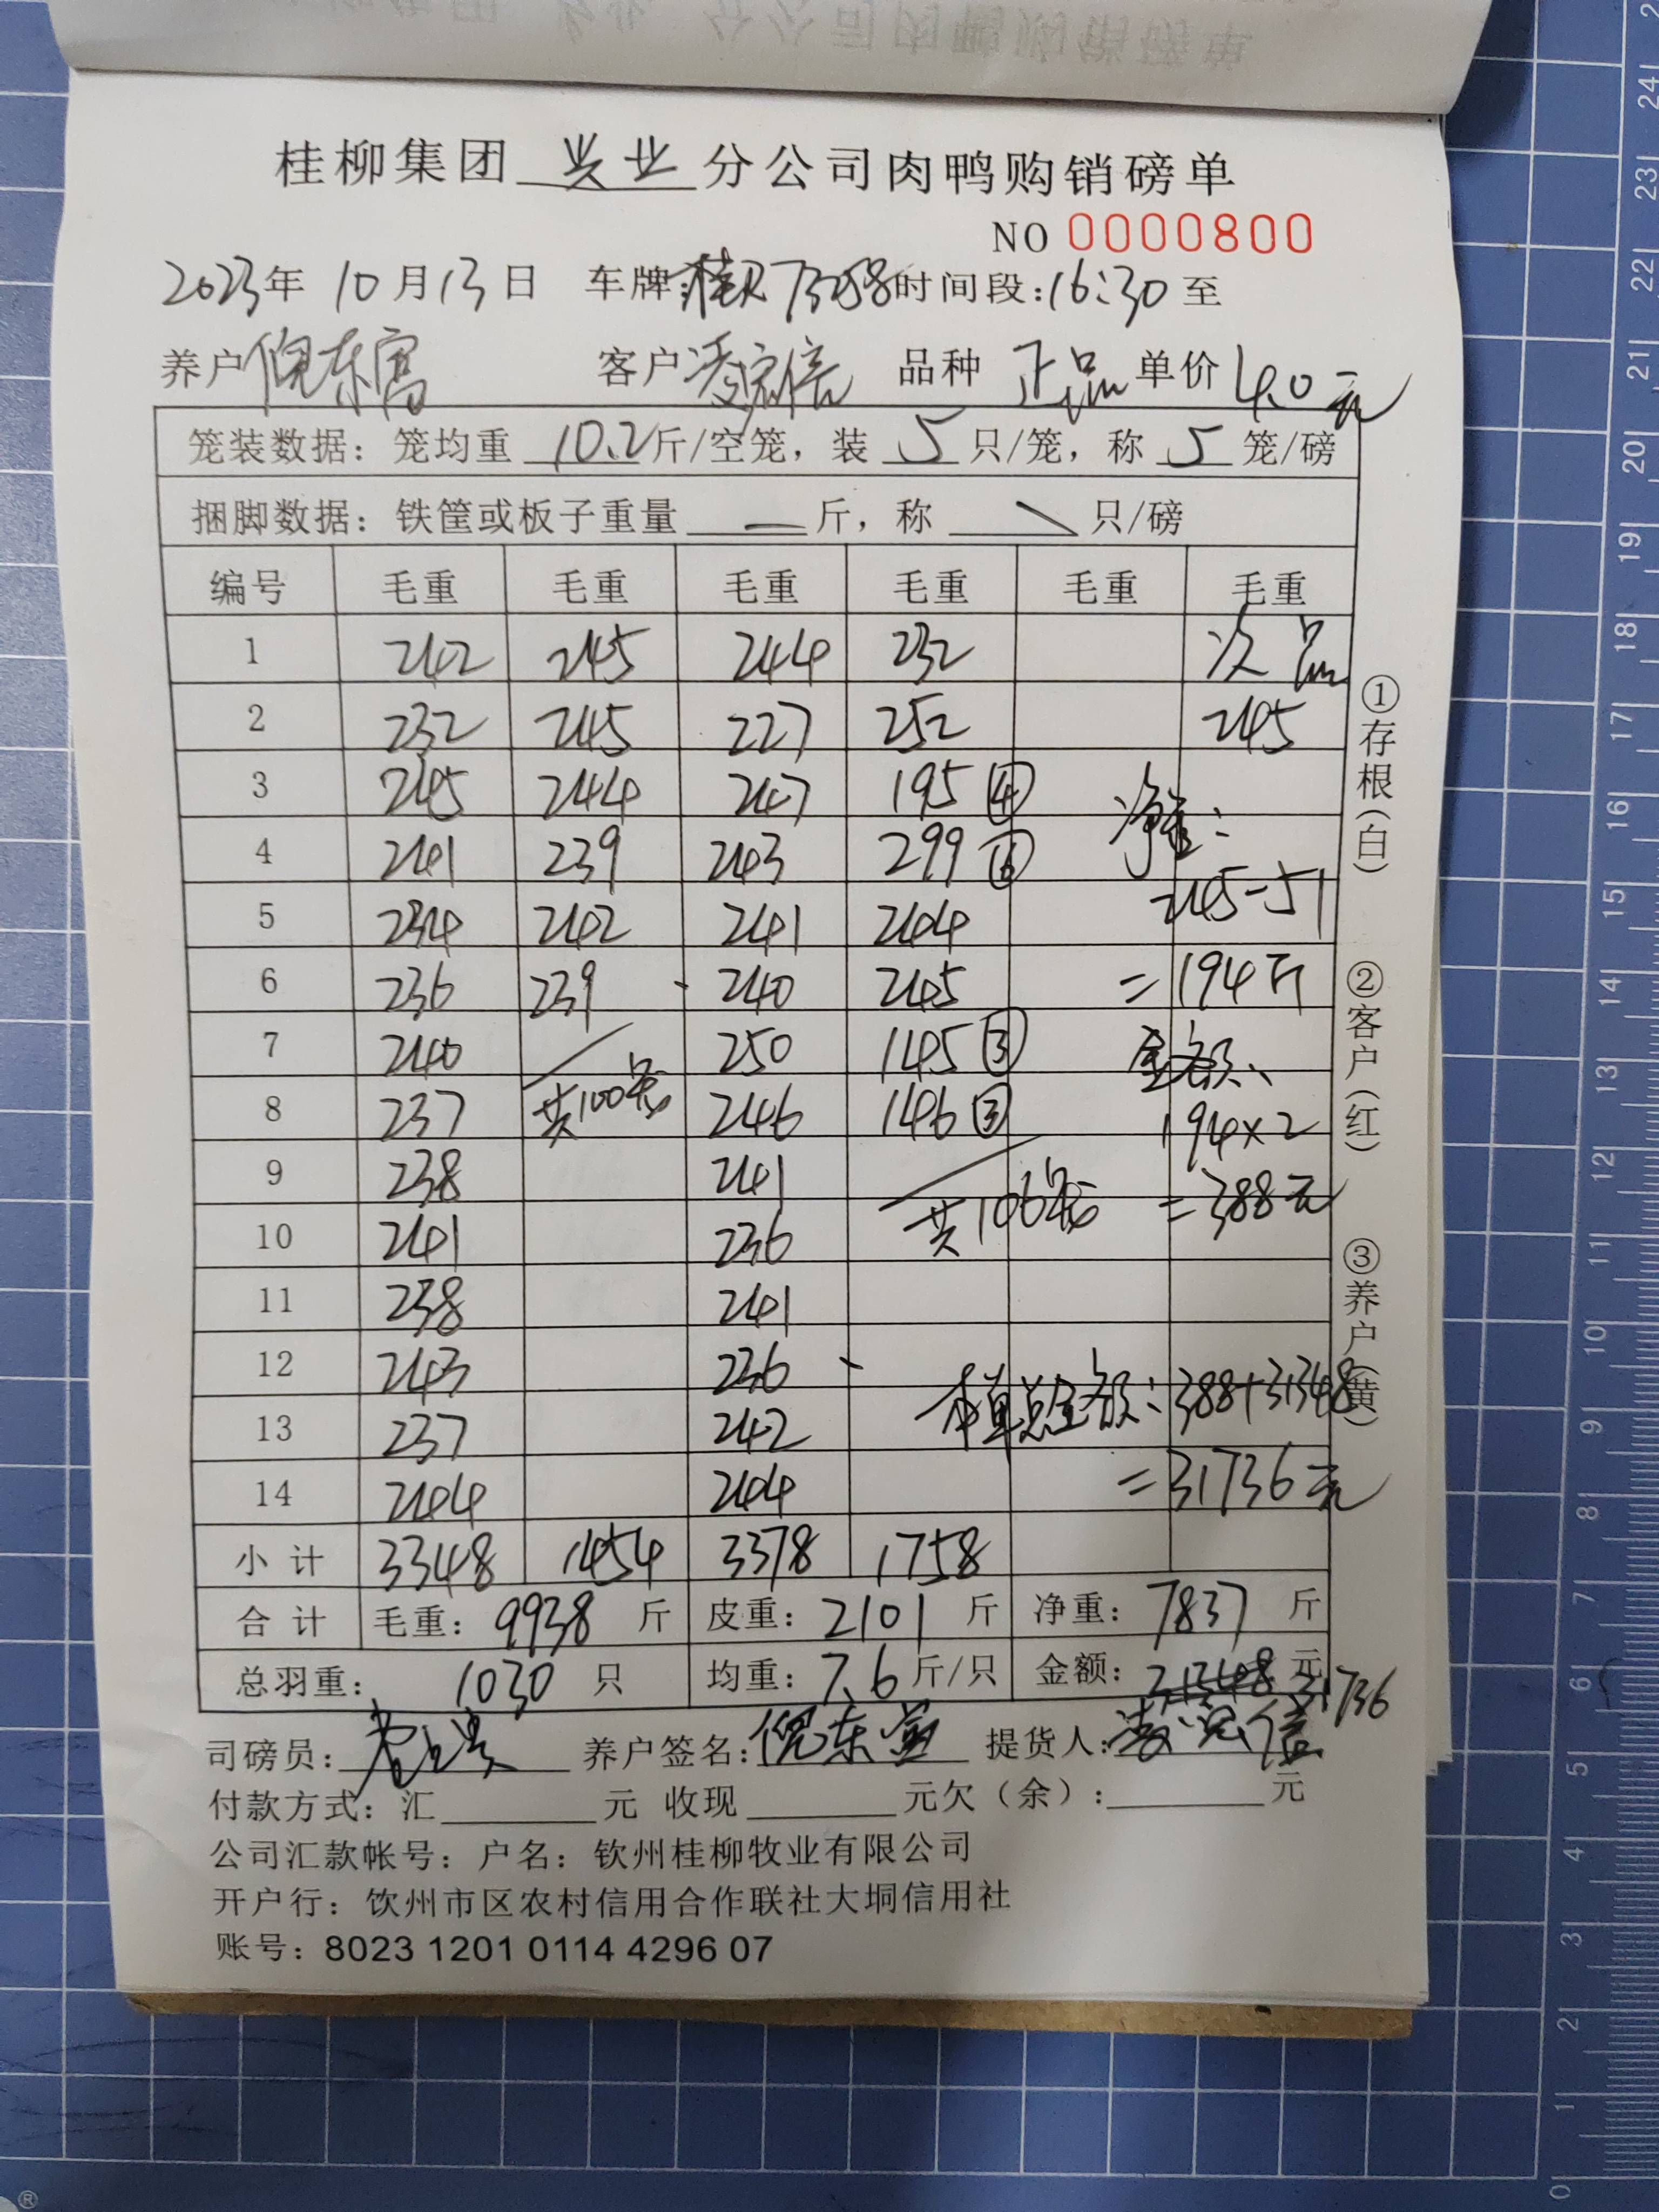 桂柳集团 兴业 分公司肉鸭购销磅单
NO 0000800
2023年 10月13日 车牌: 时间段:16:30 至
养户 倪东 客户 品种 正品 单价 4.0元
笼装数据: 笼均重 10.2斤/空笼, 装 5 只/笼, 称 5 笼/磅
捆脚数据: 铁筐或板子重量 — 斤, 称 \ 只/磅
编号 毛重 毛重 毛重 毛重 毛重 毛重
1 242 245 244 232 次品
2 232 245 227 252 245
3 245 244 247 195 ④ 净重:
4 241 239 243 299 ⑥
5 234 242 241 244 245-51
6 236 239 240 245 =194斤
7 240 250 145 ③ 金额:
8 237 共100笼 246 146 ③ 194×2
9 238 241
10 241 236 共106笼 =388元
11 238 241
12 243 236
13 237 242 本单总金额:388+31348
14 244 244 =31736元
小计 3348 1454 3378 1758
合计 毛重: 9938 斤 皮重: 2101 斤 净重: 7837 斤
总羽重: 1030 只 均重: 7.6斤/只 金额: 31348 元 31736
司磅员: 养户签名: 倪东 提货人:
付款方式: 汇 元 收现 元欠(余): 元
公司汇款帐号: 户名: 钦州桂柳牧业有限公司
开户行: 饮州市区农村信用合作联社大垌信用社
账号: 8023 1201 0114 4296 07
①存根(白) ②客户(红) ③养户(黄)